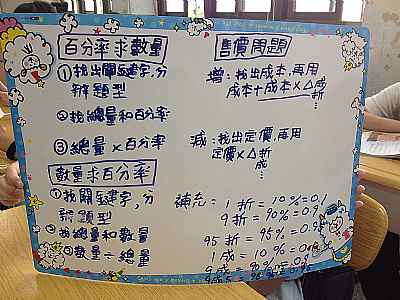 百分率求數量
①找出關鍵字,分
辨題型
②找總量和百分率
③總量×百分率
數量求百分率
①找關鍵字,分
辨題型
②找總量和數量
③數量÷總量
售價問題
增:找出成本,再用
成本+成本×△成
折
減:找出定價,再用
定價×△折
成
補充=1折=10%=0.1
9折=90%=0.9
95折=95%=
1成=10%=0.
9成=90%=0.9